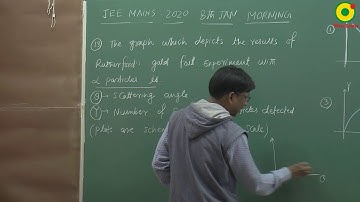 JEE MAINS 2020 8TH JAN MORNING
(15) The graph which depicts the results of
Rutherford's gold foil experiment with
α particles is
θ → Scattering angle
Y → Number of detected
(Plots are
1)
Y
3)
Y
θ